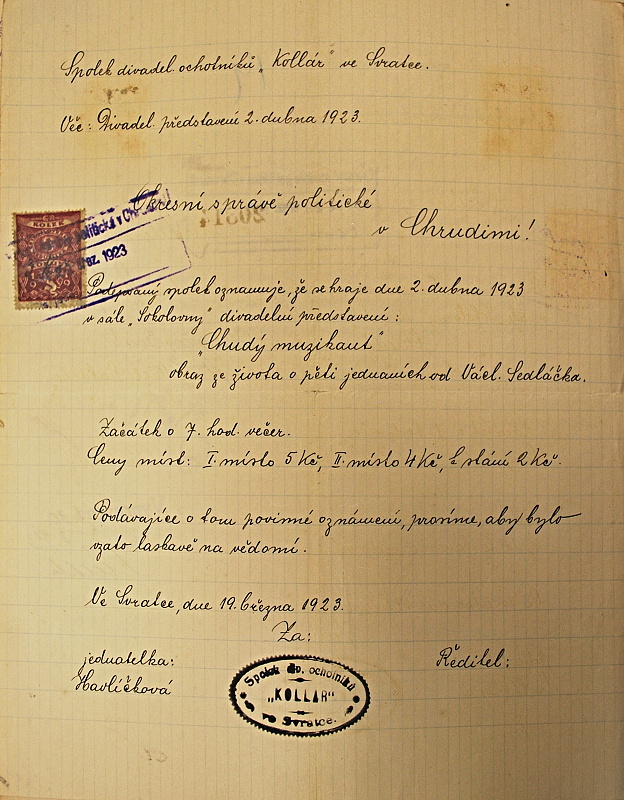 Spolek divadel. ochotníků „Kollár" ve Svratce.
Věc: Divadel. představení 2. dubna 1923.
Okresní správě politické
v Chrudimi!
KOLEK
politická v Chrudimi
1923
Podepsaný spolek oznamuje, že sehraje dne 2. dubna 1923
v sále „Sokolovny" divadelní představení:
„Chudý muzikant"
obraz ze života o pěti jednáních od Václ. Sedláčka.
Začátek o 7. hod. večer.
Ceny míst: I. místo 5 Kč, II. místo 4 Kč, k stání 2 Kč.
Podávajíce o tom povinné oznámení, prosíme, aby bylo
vzato laskavě na vědomí.
Ve Svratce, dne 19. března 1923.
Za:
jednatelka:
Ředitel:
Havlíčková
Spolek div. ochotníků
„KOLLÁR"
ve Svratce.